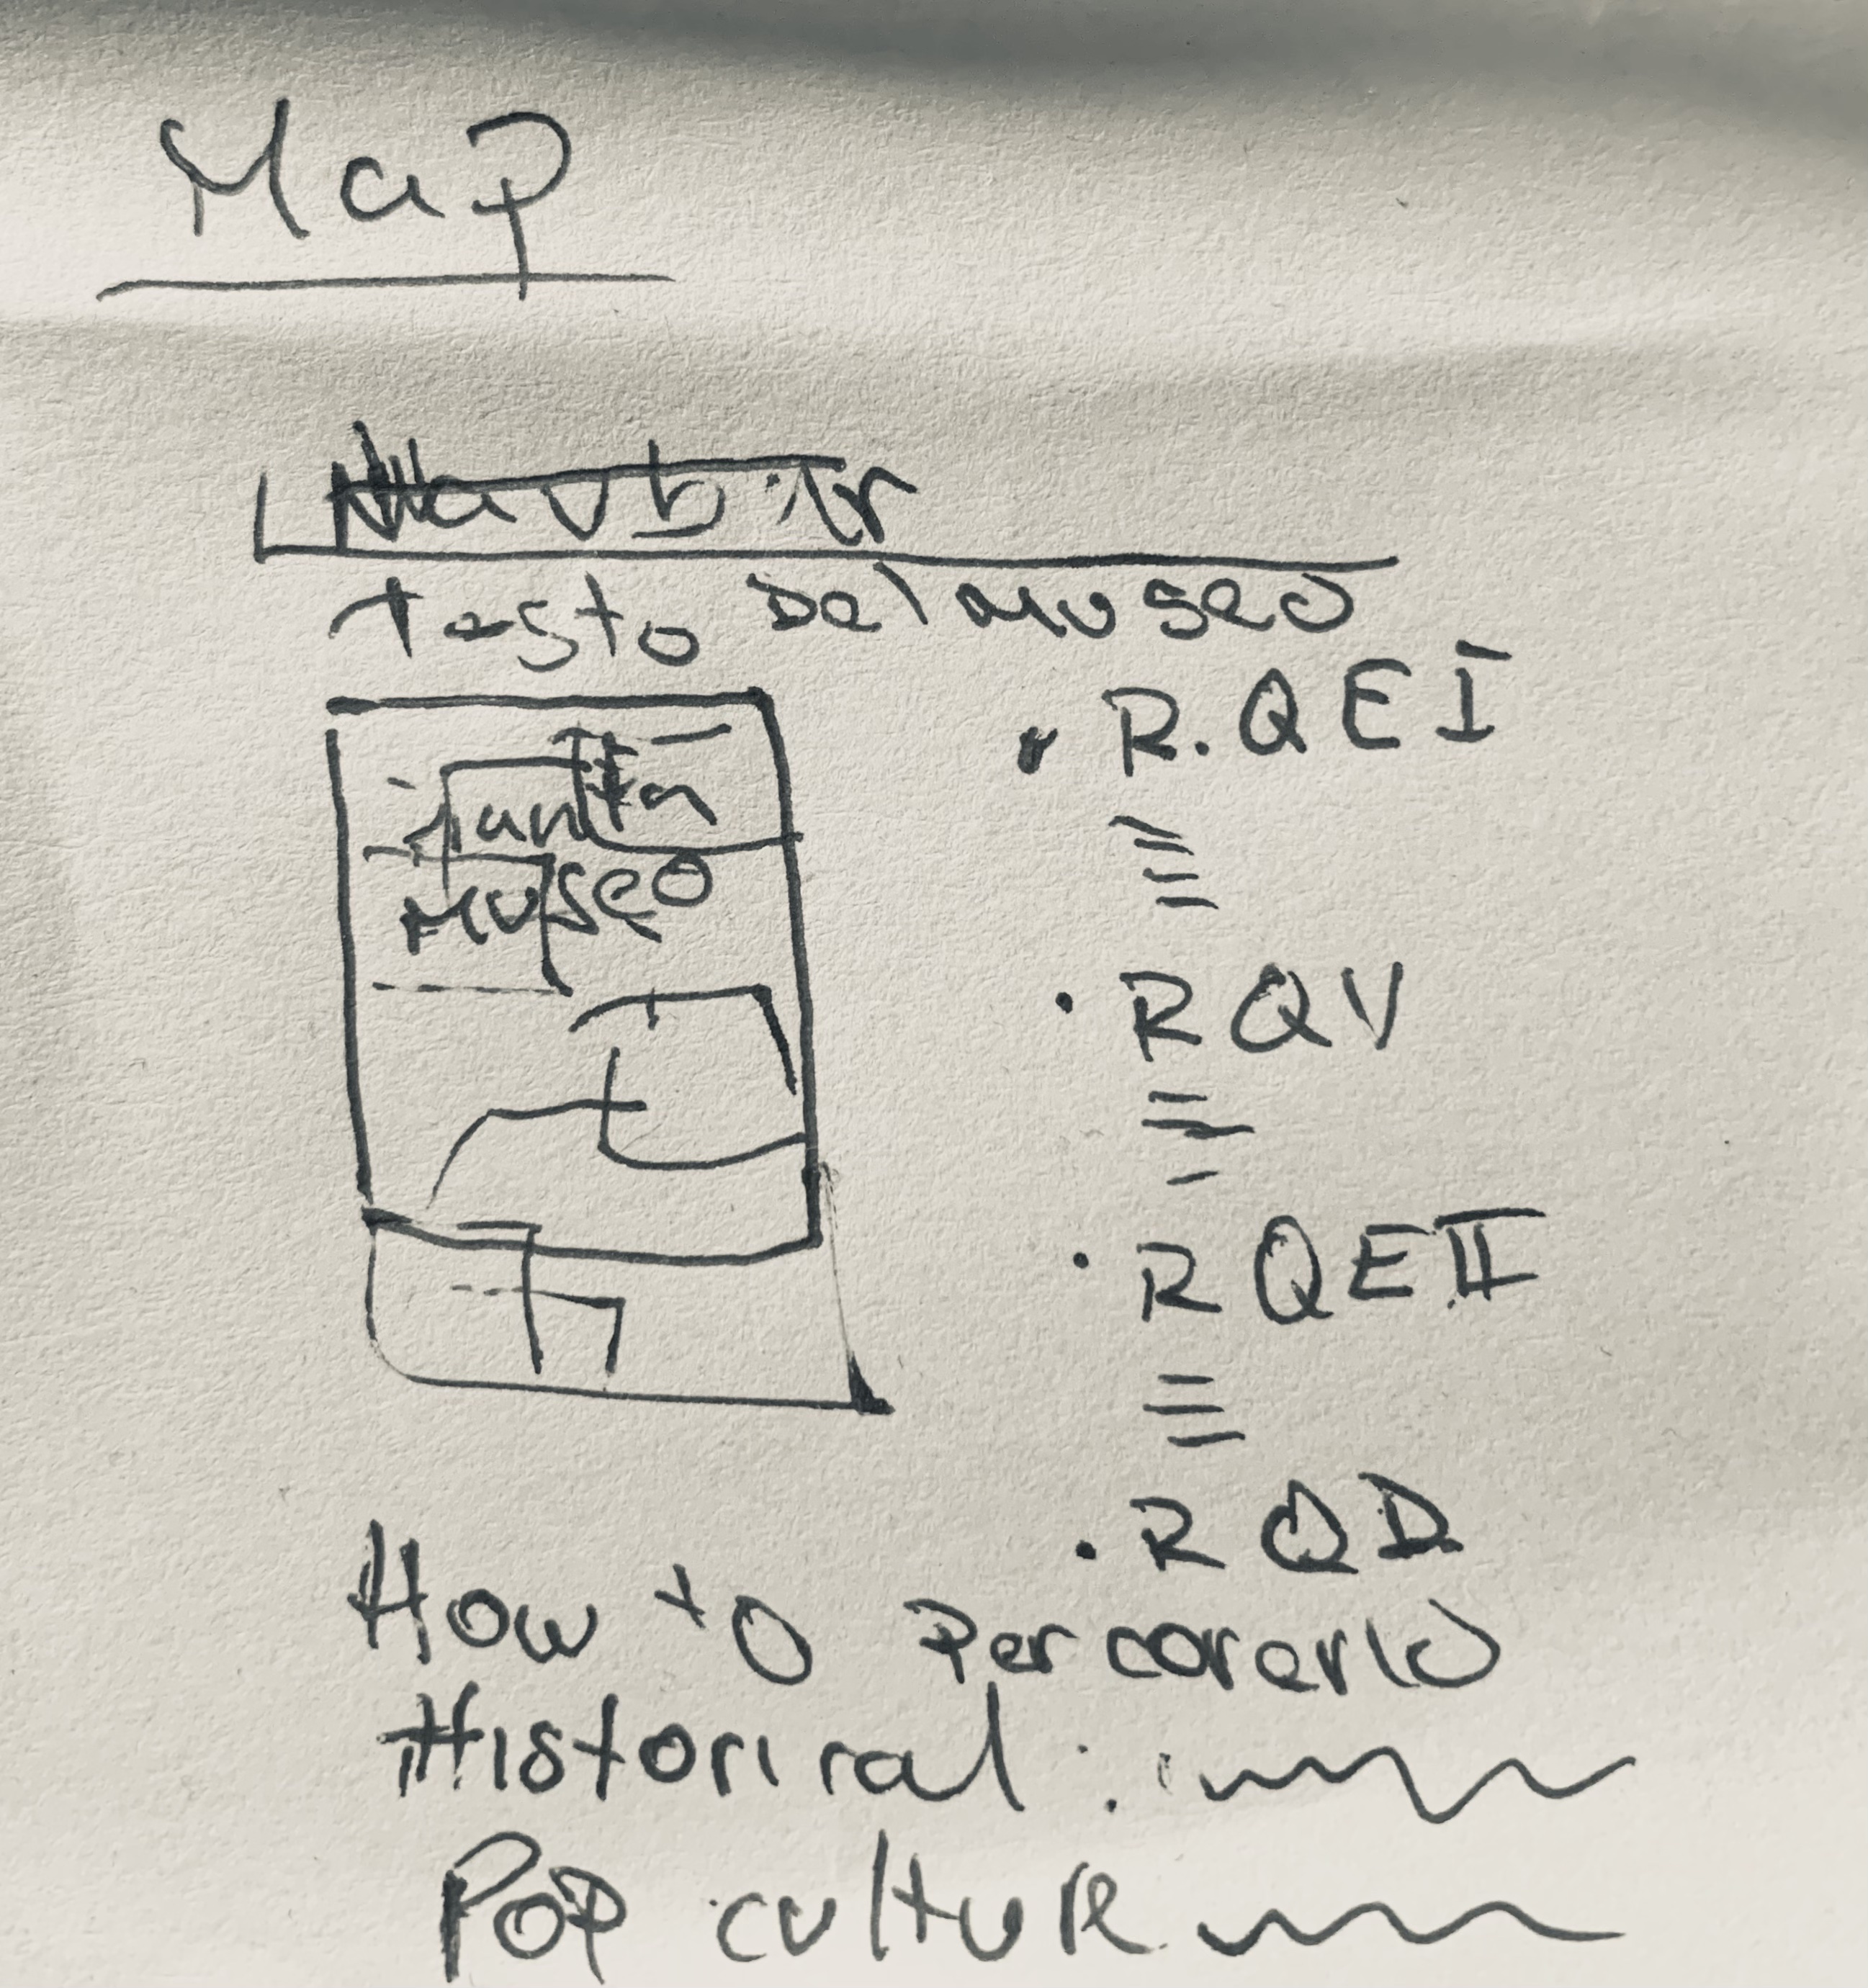 Map
Navbar
Testo Del museo
Pianta
Museo
• R.QEI
• RQV
• RQEII
• RQD
How to Percorerlo
Historiral :
Pop culture